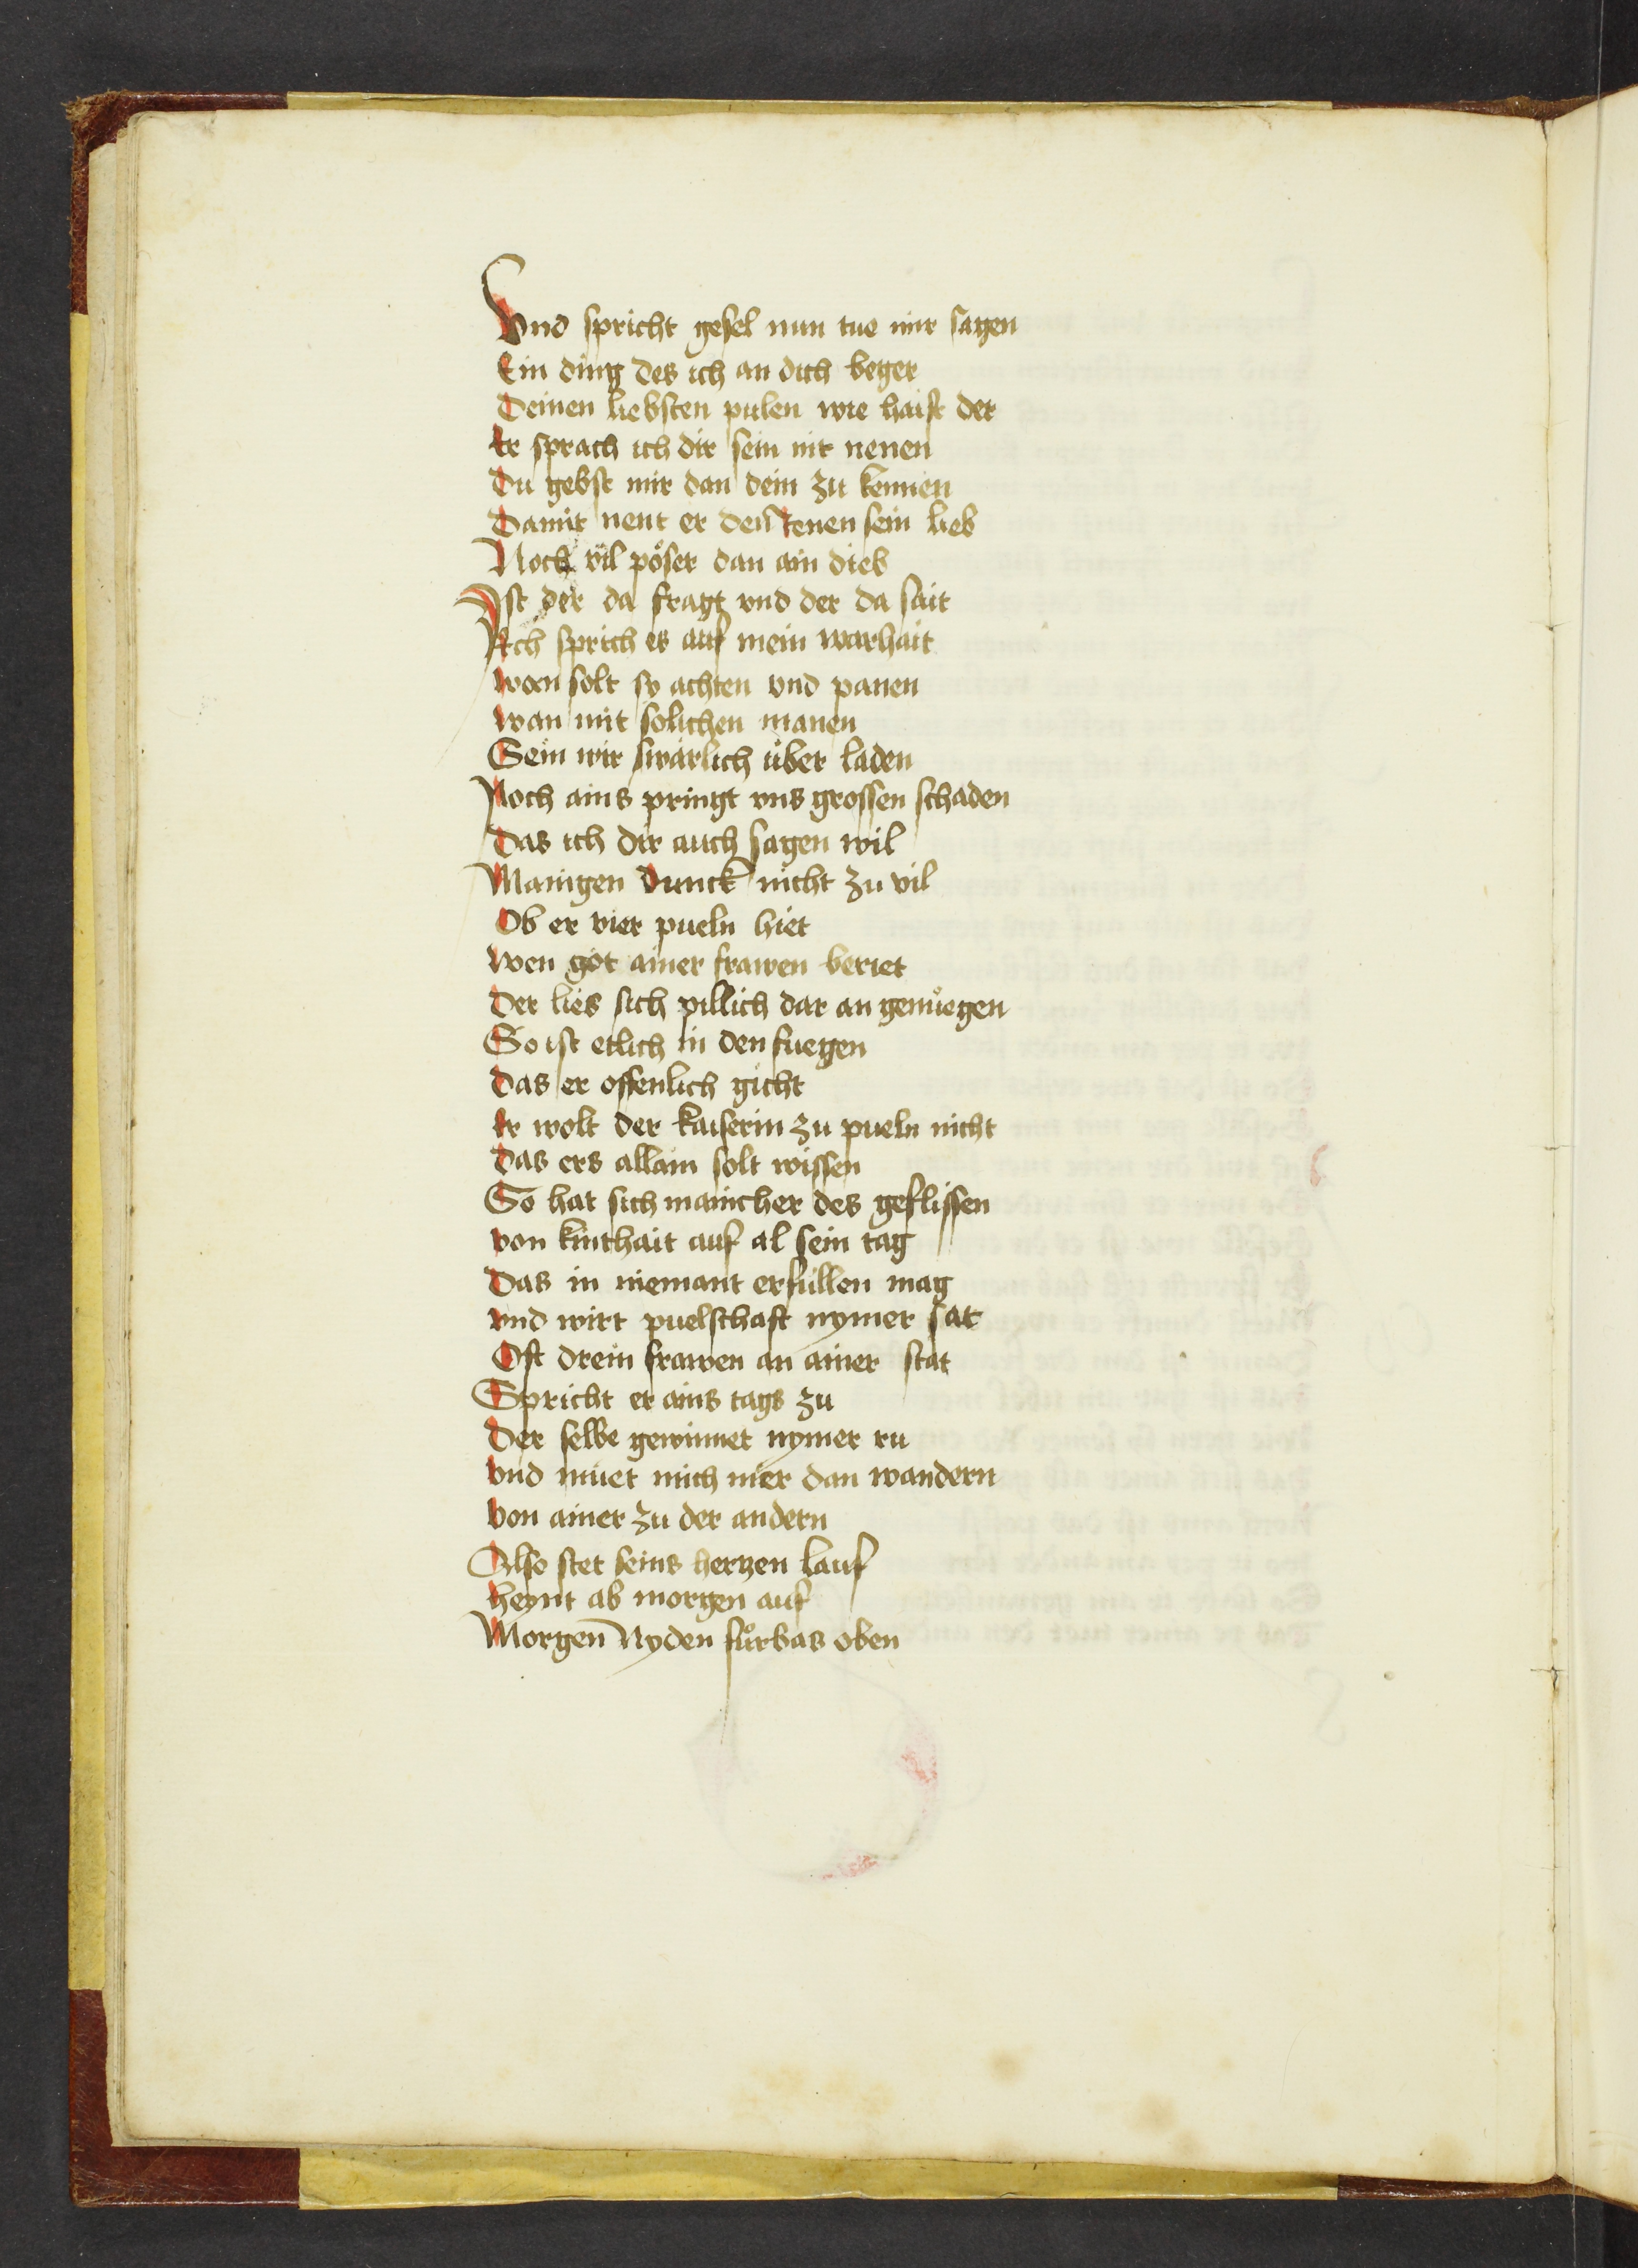 Vnd spricht gesel nun tue mir sagen
Ein ding des ich an dich beger
Deinen liebsten pulen wie haist der
Er sprach ich dir sein nit nenen
Du gebst mir dan dein zu kennen
Damit nent er den Jenen sein lieb
Noch vil pöser dan ain dieb
Ist der da fragt vnd der da sait
Ich sprich es auf mein warhait
solt sy achten vnd panen
wan mit solichen manen
Sein wir swärlich über laden
Noch ains pringt vns grossen schaden
Das ich dir auch sagen wil
Manigen dunckt nicht zu vil
Ob er vier pueln hiet
wen got ainer frawen beriet
Der lies sich pillich dar an genuegen
So ist etlich in den fuegen
Das er offenlich gicht
Er wolt der kaiserin zu pueln nicht
Das ers allain solt wissen
So hat sich manicher des geflissen
von kinthait auf al sein tag
Das in niemant erfüllen mag
vnd wirt puelschaft nymer sat
Oft drein frawen an ainer stat
Spricht er ains tags zu
Der selbe gewinnet nymer ru
vnd müet mich mer dan wandern
von ainer zu der andern
Also stet seins hertzen lauf
heynt ab morgen auf
Morgen Nyden fürbas oben